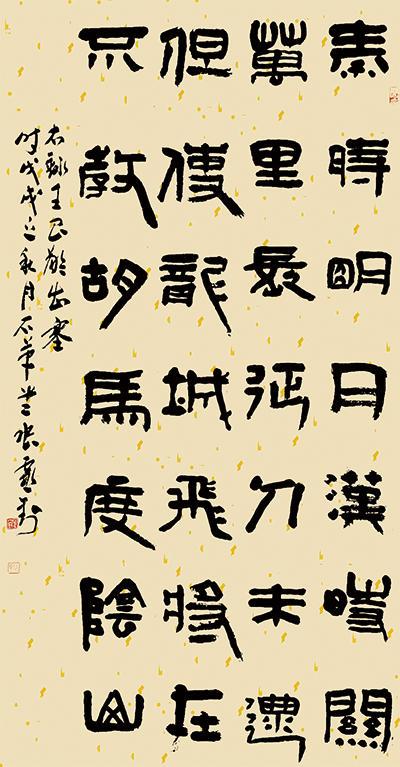 秦時明月漢時關
萬里長征人未還
但使龍城飛將在
不教胡馬度陰山
右録王昌齡出塞
时戊戌之秋月石